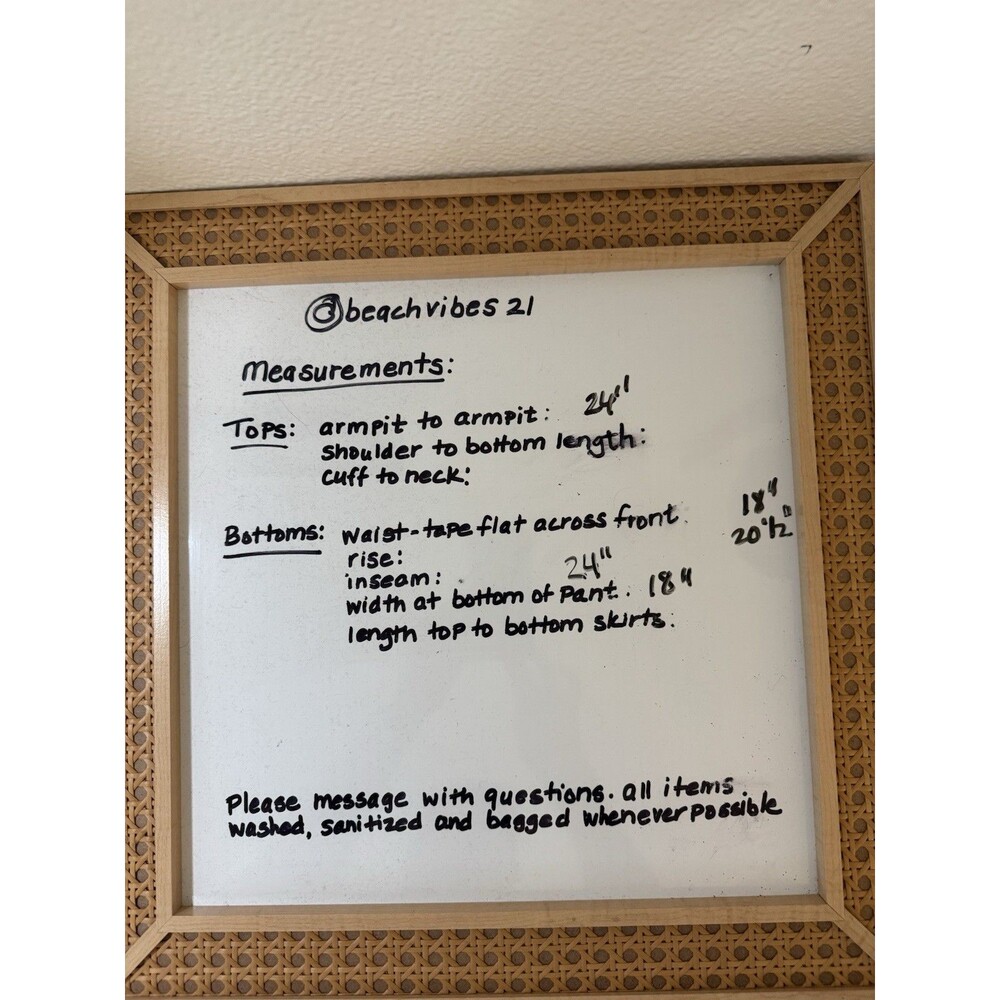 @beachvibes 21
Measurements:
Tops: armpit to armpit: 24"
shoulder to bottom length:
cuff to neck:
Bottoms: waist-tape flat across front. 18"
20 1/2"
rise:
inseam: 24"
width at bottom of pant. 18"
length top to bottom skirts:
Please message with questions. all items.
washed, sanitized and bagged whenever possible